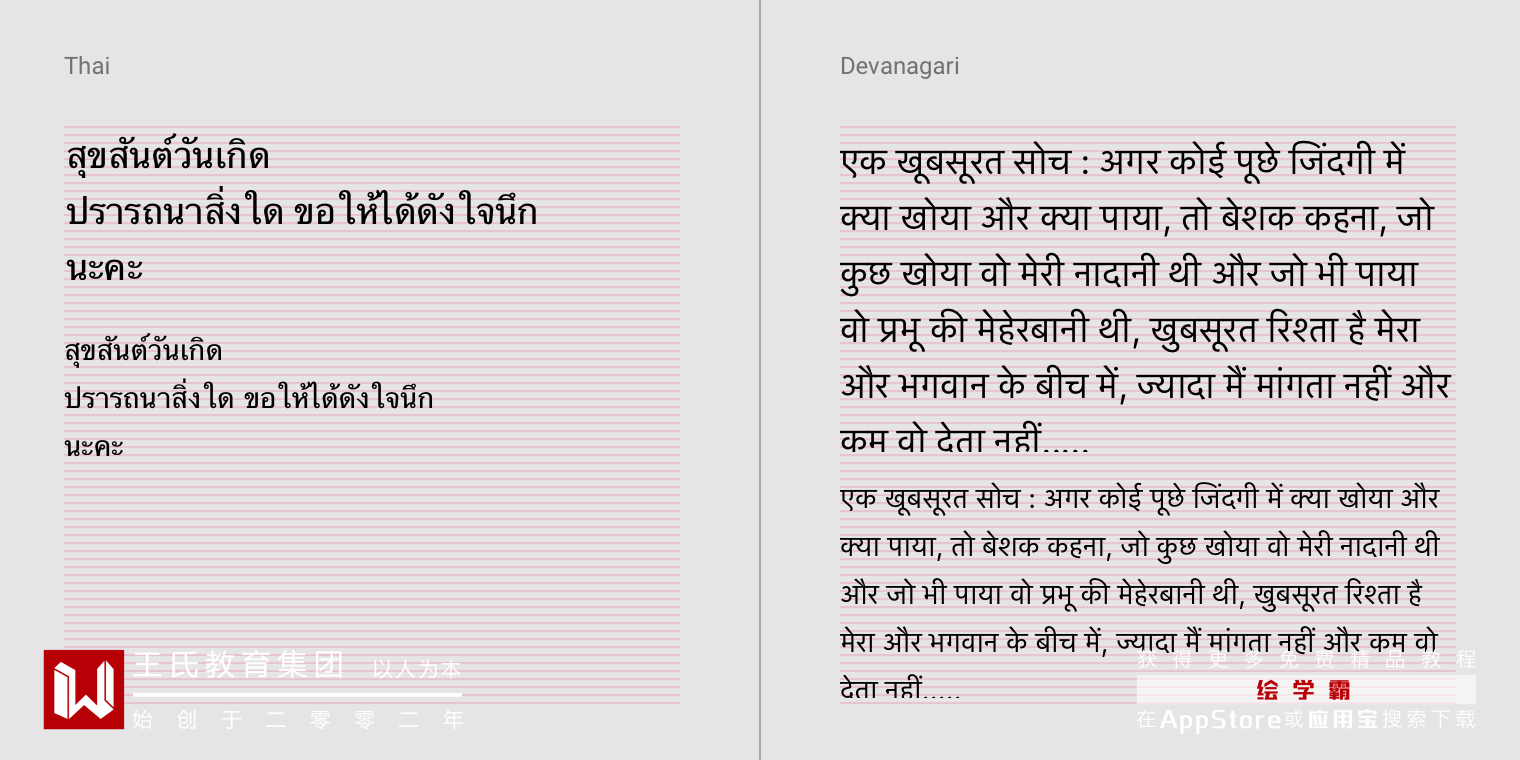 Thai
สุขสันต์วันเกิด
ปรารถนาสิ่งใด ขอให้ได้ดังใจนึก
นะคะ
สุขสันต์วันเกิด
ปรารถนาสิ่งใด ขอให้ได้ดังใจนึก
นะคะ
Devanagari
एक खूबसूरत सोच : अगर कोई पूछे जिंदगी में
क्या खोया और क्या पाया, तो बेशक कहना, जो
कुछ खोया वो मेरी नादानी थी और जो भी पाया
वो प्रभू की मेहेरबानी थी, खुबसूरत रिश्ता है मेरा
और भगवान के बीच में, ज्यादा मैं मांगता नहीं और
कम वो देता नहीं.....
एक खूबसूरत सोच : अगर कोई पूछे जिंदगी में क्या खोया और
क्या पाया, तो बेशक कहना, जो कुछ खोया वो मेरी नादानी थी
और जो भी पाया वो प्रभू की मेहेरबानी थी, खुबसूरत रिश्ता है
मेरा और भगवान के बीच में, ज्यादा मैं मांगता नहीं और कम वो
देता नहीं.....
王氏教育集团 以人为本
始创于二零零二年
获得更多免费精品教程
绘学霸
在AppStore或应用宝搜索下载